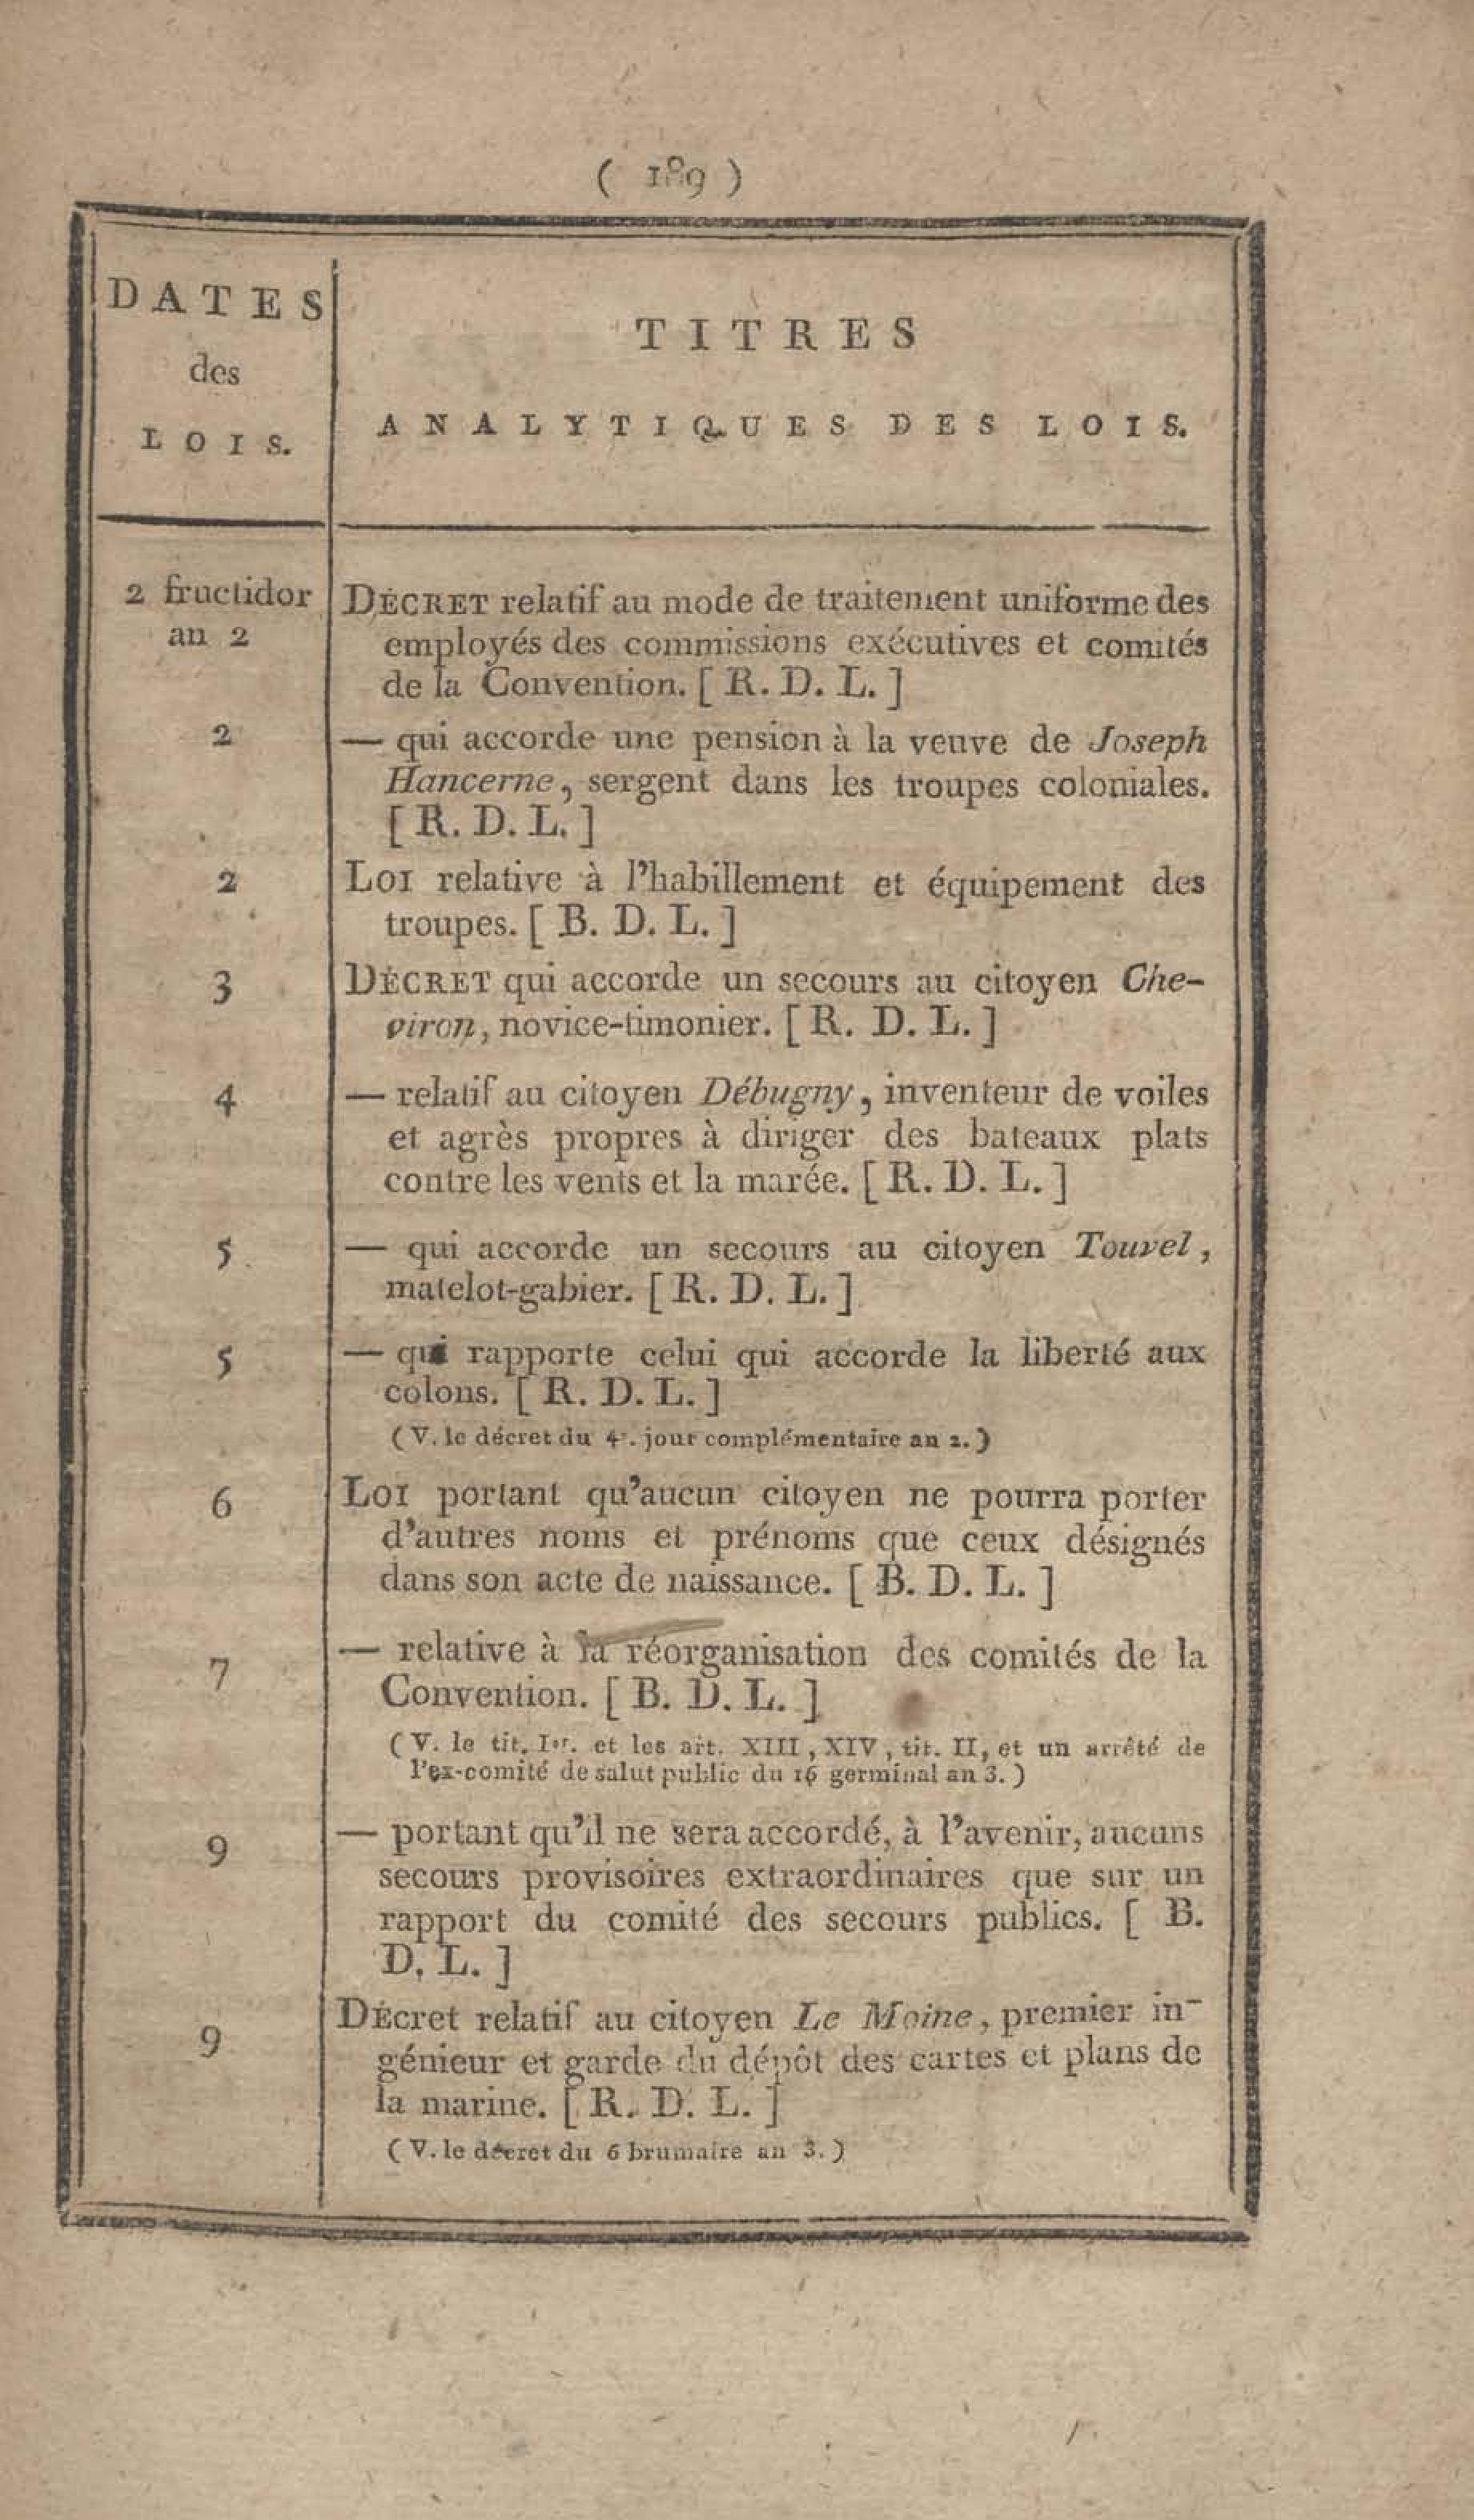 ( 189 )
DATES
des
LOIS.
TITRES
ANALYTIQUES DES LOIS.
2 fructidor
an 2
DÉCRET relatif au mode de traitement uniforme des
employés des commissions exécutives et comités
de la Convention. [ R. D. L. ]
2
— qui accorde une pension à la veuve de Joseph
Hancerne, sergent dans les troupes coloniales.
[ R. D. L. ]
2
LOI relative à l'habillement et équipement des
troupes. [ B. D. L. ]
3
DÉCRET qui accorde un secours au citoyen Che-
viron, novice-timonier. [ R. D. L. ]
4
— relatif au citoyen Débugny, inventeur de voiles
et agrès propres à diriger des bateaux plats
contre les vents et la marée. [ R. D. L. ]
5
— qui accorde un secours au citoyen Touvel,
matelot-gabier. [ R. D. L. ]
5
— qui rapporte celui qui accorde la liberté aux
colons. [ R. D. L. ]
( V. le décret du 4e. jour complémentaire an 2. )
6
LOI portant qu'aucun citoyen ne pourra porter
d'autres noms et prénoms que ceux désignés
dans son acte de naissance. [ B. D. L. ]
7
— relative à la réorganisation des comités de la
Convention. [ B. D. L. ]
( V. le tit. Ier. et les art. XIII, XIV, tit. II, et un arrêté de
l'ex-comité de salut public du 16 germinal an 3. )
9
— portant qu'il ne sera accordé, à l'avenir, aucuns
secours provisoires extraordinaires que sur un
rapport du comité des secours publics. [ B.
D. L. ]
9
DÉcret relatif au citoyen Le Moine, premier in-
génieur et garde du dépôt des cartes et plans de
la marine. [ R. D. L. ]
( V. le décret du 6 brumaire an 3. )